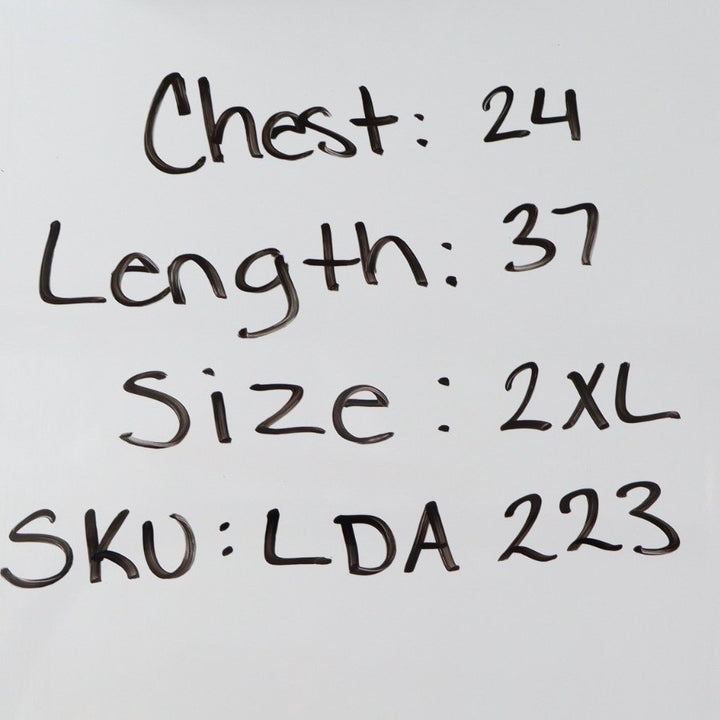 Chest: 24
Length: 37
Size: 2XL
SKU: LDA 223